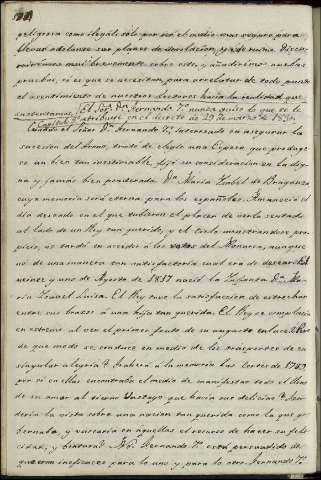 peligrosa como ilegal: sólo por ser el medio mas seguro para
llevar adelante sus planes de desolacion, y de ruina. Discu-
rriremos muy brevemente sobre esto, y añadiremos nuevas
pruebas, si es que se necesitan, para arrebatar de todo punto
el asentimiento de nuestros lectores hacia la realidad que
sustentamos. El Sor. Dn. Fernando 7º nunca quiso lo que se le
Capítulo 2º atribuye en el decreto de 29 de marzo de 1830.
Cuando el Señor Dn. Fernando 7º interesado en asegurar la
sucesion del trono, trató de elegir una Esposa que produge-
se un bien tan inestimable, fijó su consideracion en la dig-
na y jamás bien ponderada Dª Maria Isabel de Braganza
cuya memoria será eterna para los españoles. Amaneció el
dia deseado en el que tubieron el placer de verla sentada
al lado de un Rey tan querido, y el Cielo mostrandose pro-
picio, no tardó en acceder á los votos del Monarca, aunque
nó de una manera tan satisfactoria cual era de desear. El
veinte y uno de Agosto de 1817 nació la Infanta Dª Ma-
ria Isavel Luisa. El Rey tuvo la satisfaccion de estrechar
entre sus brazos á una hija tan querida. El Rey se complacia
en estremo al ver el primer fruto de su augusto enlace. ¿Pero
de que modo se conduce en medio de los trasportes de su
singular alegria? ¿traherá á la memoria las Cortes de 1789
por si en ellas encontraba el medio de manifestar todo el lleno
de su amor al tierno Vástago que hacia sus delicias? ¿ten-
deria la vista sobre una nacion tan querida como la que go-
bernaba, y buscaria en aquellas el recurso de hacerla feli-
cidad, y ventura? Nó. Fernando 7º está persuadido de
que son ineficaces para lo uno, y para lo otro. Fernando 7º